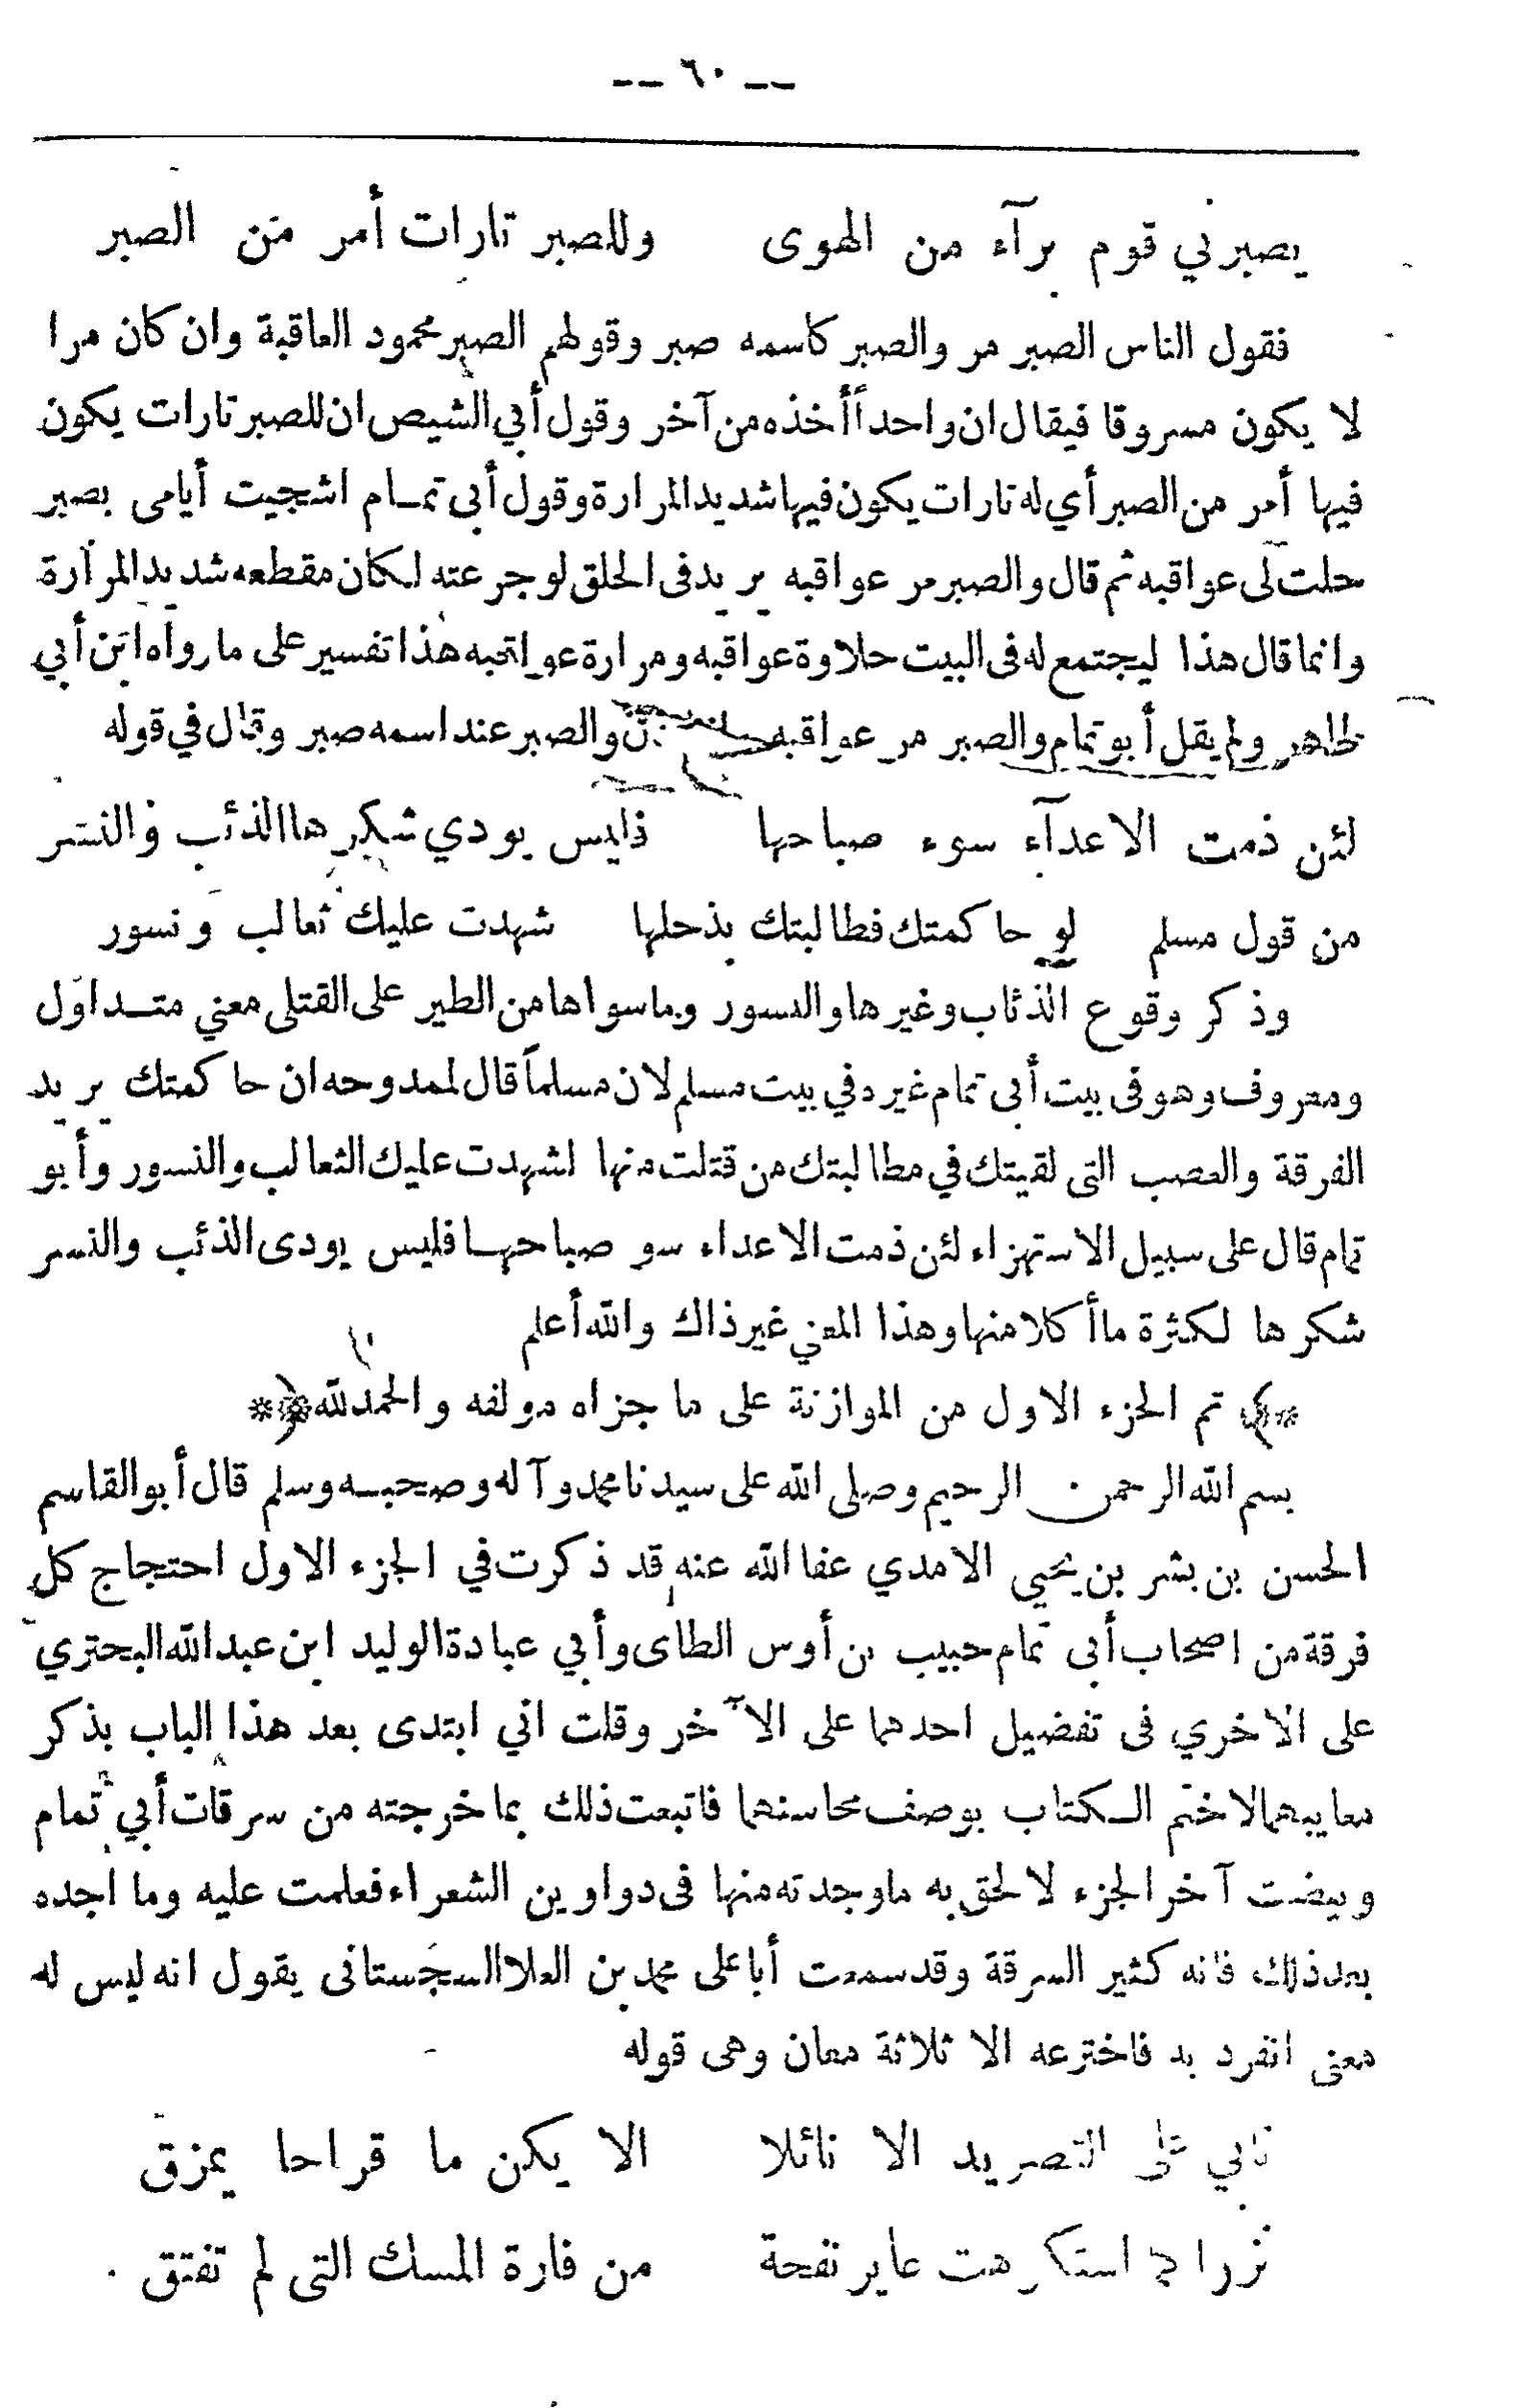 -- ٦٠ --
يصبرني قوم برآء من الهوى وللصبر تارات أمر من الصبر
فقول الناس الصبر مر والصبر كاسمه صبر وقولهم الصبر محمود العاقبة وان كان مرا
لا يكون مسروقا فيقال ان واحداً أخذه من آخر وقول أبي الشيص ان للصبر تارات يكون
فيها أمر من الصبر أي له تارات يكون فيها شديد المرارة وقول أبى تمام اشجيت أيامى بصبر
حلت لى عواقبه ثم قال والصبر مر عواقبه يريد فى الحلق لو جرعته لكان مقطعه شديد المرارة
وانما قال هذا ليجتمع له فى البيت حلاوة عواقبه ومرارة عواقبه هذا تفسير على ما رواه ابن أبي
طاهر ولم يقل أبو تمام والصبر مر عواقبه والصبر عند اسمه صبر وقال في قوله
لئن ذمت الاعدآء سوء صباحها فليس يودي شكرها الذئب والنسر
من قول مسلم لو حاكمتك فطالبتك بذحلها شهدت عليك ثعالب ونسور
وذكر وقوع الذئاب وغيرها والنسور وما سواها من الطير على القتلى معني متداول
ومعروف وهو فى بيت أبى تمام غيره في بيت مسلم لان مسلماً قال لممدوحه ان حاكمتك يريد
الفرقة والعصب التى لقيتك في مطالبتك من قتلت منها لشهدت عليك الثعالب والنسور وأبو
تمام قال على سبيل الاستهزاء لئن ذمت الاعداء سو صباحها فليس يودى الذئب والنسر
شكرها لكثرة ما أكلا منها وهذا المعني غير ذاك والله أعلم
تم الجزء الاول من الموازنة على ما جزاه مولفه والحمد لله
بسم الله الرحمن الرحيم وصلى الله على سيدنا محمد وآله وصحبه وسلم قال أبو القاسم
الحسن بن بشر بن يحيي الامدي عفا الله عنه قد ذكرت في الجزء الاول احتجاج كل
فرقة من اصحاب أبى تمام حبيب بن أوس الطاى وأبي عبادة الوليد ابن عبد الله البحتري
على الاخري فى تفضيل احدهما على الآخر وقلت اني ابتدى بعد هذا الباب بذكر
معايبهما لاختم الكتاب بوصف محاسنهما فاتبعت ذلك بما خرجته من سرقات أبي تمام
وبيضت آخر الجزء لالحق به ما وجدته منها فى دواوين الشعراء فعلمت عليه وما اجده
بعد ذلك فانه كثير السرقة وقد سمعت أبا على محمد بن العلا السجستانى يقول انه ليس له
معنى انفرد به فاخترعه الا ثلاثة معان وهى قوله
تابي على التصريد الا نائلا الا يكن ما قراحا يمزق
نزرا استكرهت عاير نفحة من فارة المسك التى لم تفتق